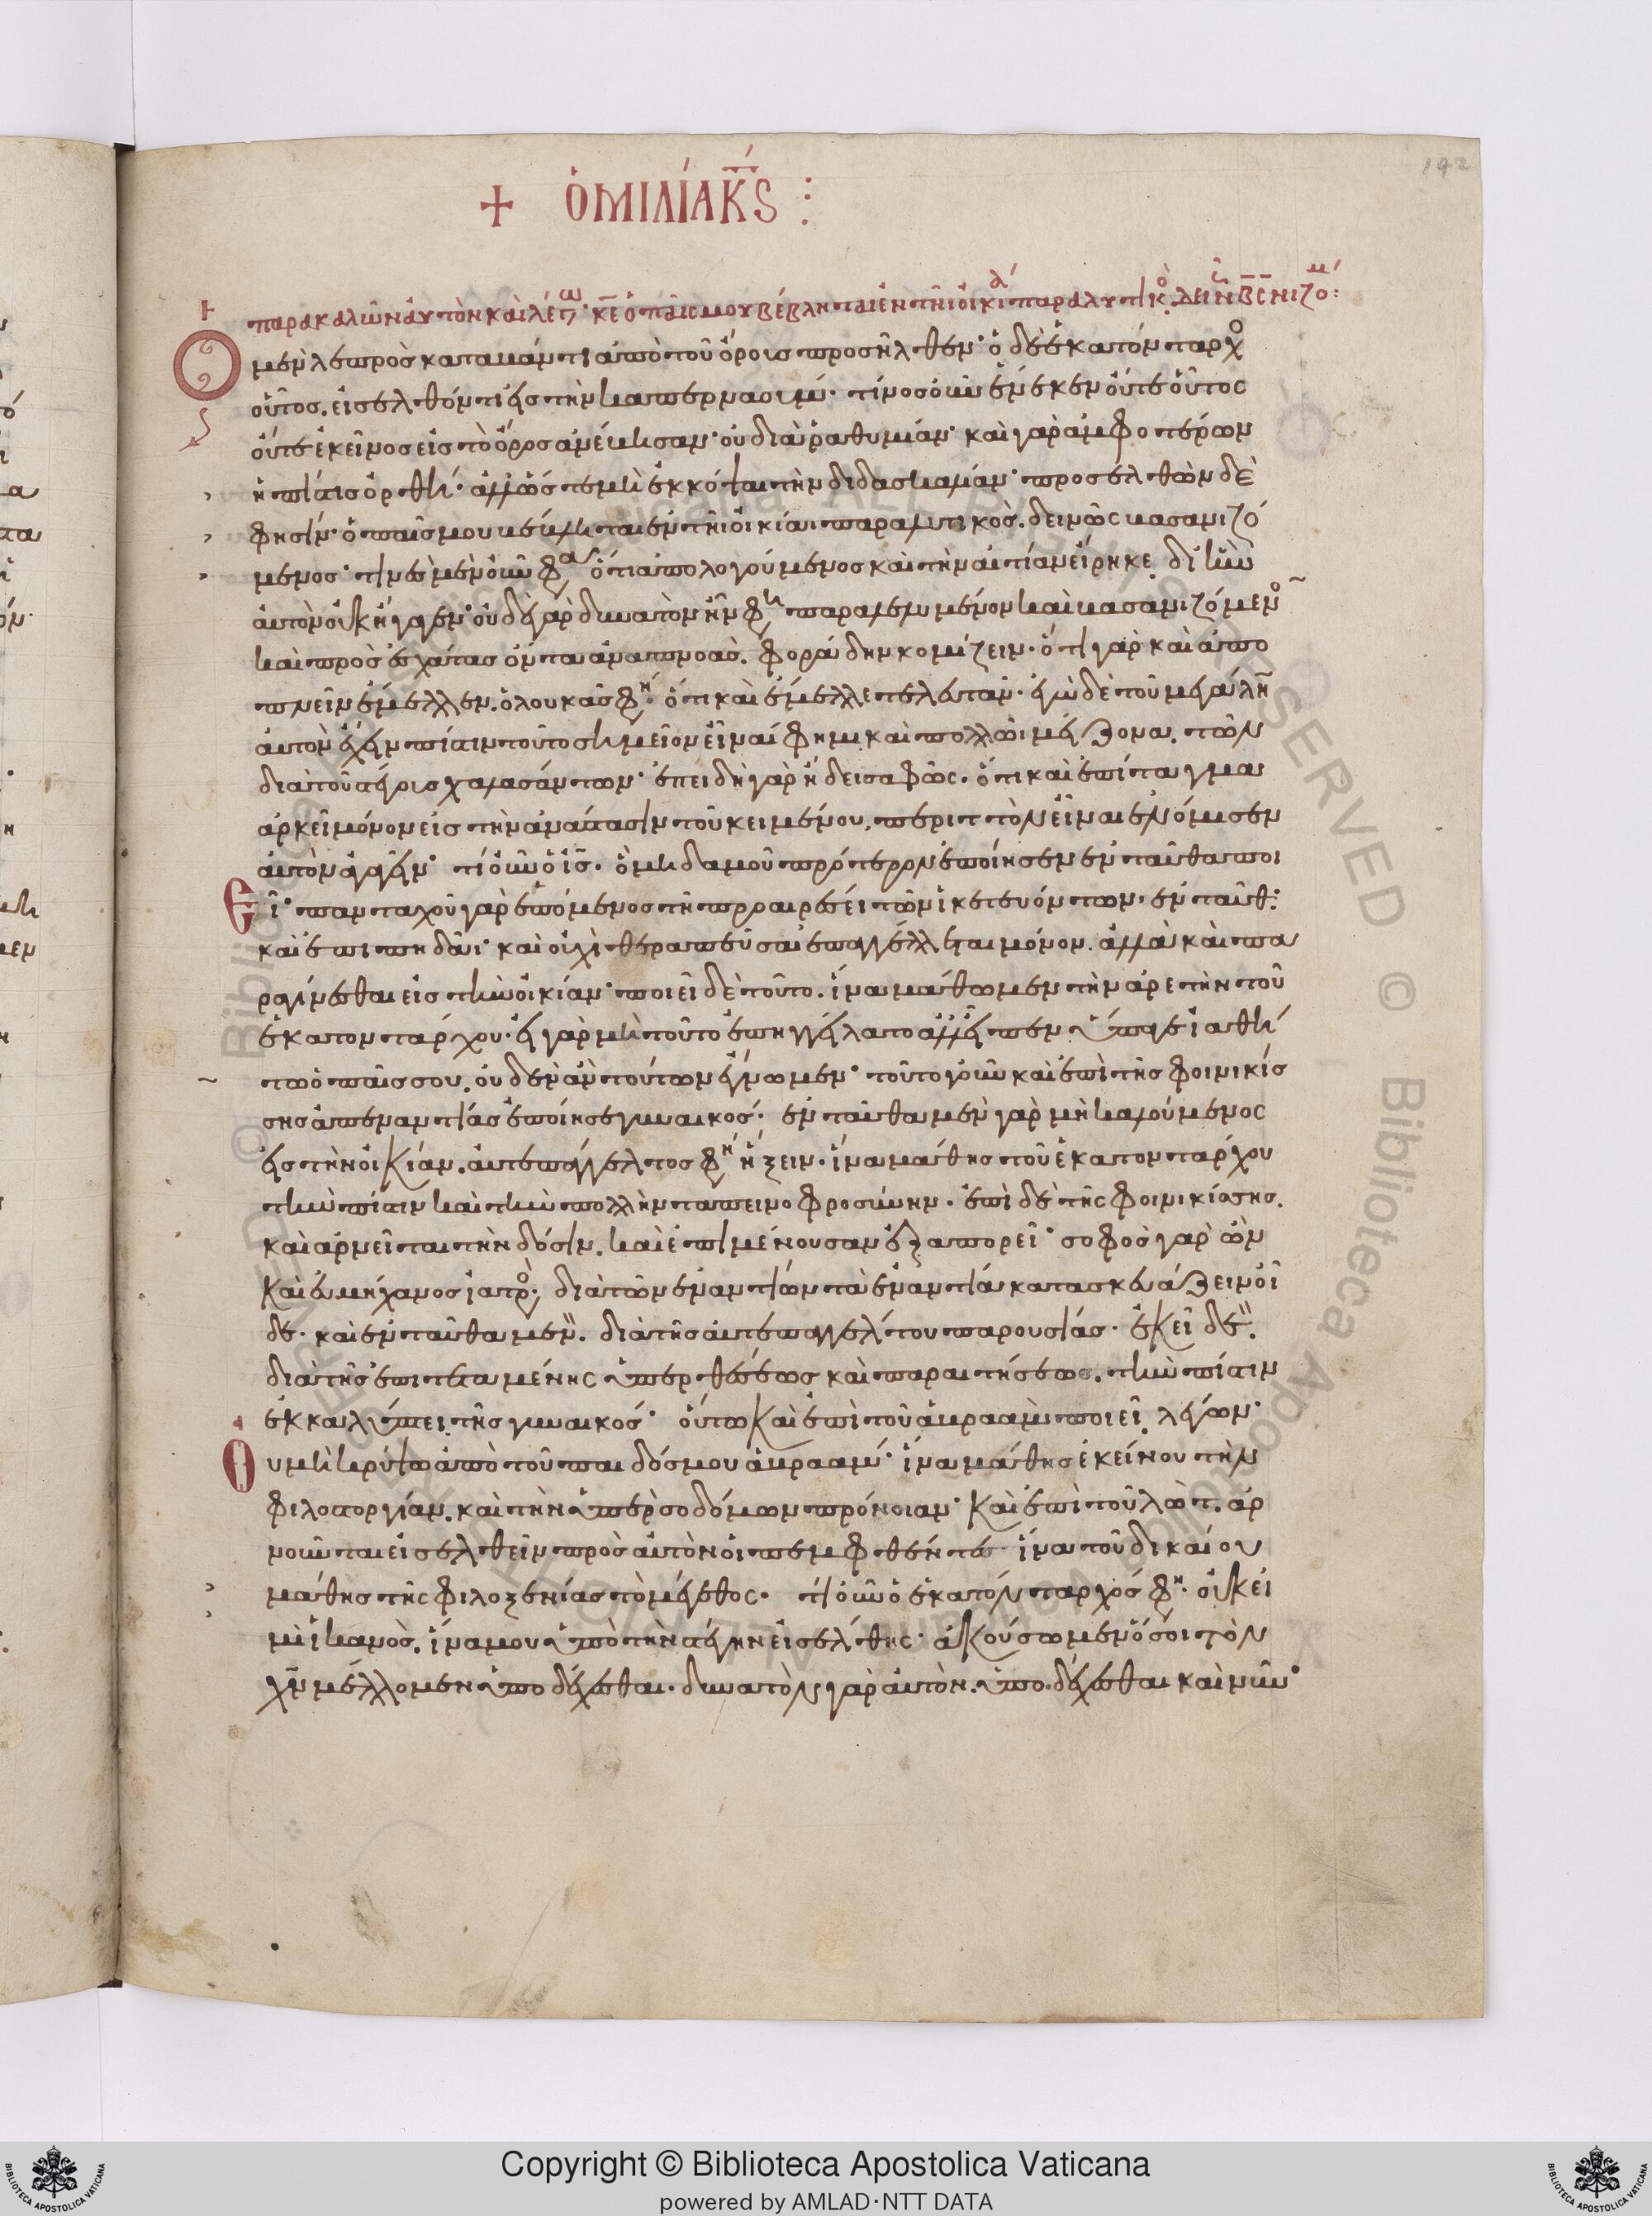 + ὁμιλία κϛ :
παρακαλῶν αὐτὸν καὶ λέγω· κε ὁ παῖς μου βέβληται ἐν τῆι οἰκία παραλυτικο. δειν βσνιζομ :
Ὁ μὲν λεπρὸς καταβάντι ἀπὸ τοῦ ὄρους προσῆλθεν· ὁ δὲ ἑκατόνταρχο
οὗτος. εἰσελθόντι εἰς τὴν καπερναούμ· τίνος οὖν ἕνεκεν οὔτε οὗτος
οὔτε ἐκεῖνος εἰς τὸ ὄρος ἀνέβησαν· οὐ διὰ ῥαθυμίαν· καὶ γὰρ ἀμφοτέρων
ἡ πίστις ὀρθή· ἀλλ' ὥστε μὴ ἐκκόψαι τὴν διδασκαλίαν· προσελθὼν δὲ
φησίν· ὁ παῖς μου βέβληται ἐν τῆι οἰκίαι παραλυτικὸς. δεινῶς βασανιζό
μενος· τινὲς μὲν οὖν φα ὅτι ἀπολογούμενος καὶ τὴν αἰτίαν εἴρηκε. δι' ἣν
αὐτὸν οὐκ ἤγαγεν· οὐδὲ γὰρ δυνατὸν ἦν φη παραλελυμένον καὶ βασανιζόμενο
καὶ πρὸς ἐσχάτας ὄντα ἀναπνοάς. φοράδην κομίζειν· ὅτι γὰρ καὶ ἀπο
πνεῖν ἔμελλεν. ὁ λουκᾶς φη· ὅτι καὶ ἔμελλε τελευτᾶν· ἐγὼ δὲ τοῦ μεγάλη
αὐτὸν ἔχειν πίστιν τοῦτο σημεῖον εἶναί φημι καὶ πολλῶι μείζονα. τῶν
διὰ τοῦ στέγους χαλασάντων· ἐπειδὴ γὰρ ἤδει σαφῶς. ὅτι καὶ ἐπίταγμα
ἀρκεῖ μόνον εἰς τὴν ἀνάστασιν τοῦ κειμένου. περιττὸν εἶναι ἐνόμισεν
αὐτὸν ἀγαγεῖν· τί οὖν ὁ ις. ὃ μηδαμοῦ πρότερον ἐποίησεν ἐνταῦθα ποι
Εῖ· πανταχοῦ γὰρ ἑπόμενος τῆ προαιρέσει τῶν ἱκετευόντων. ἐνταῦθ:
καὶ ἐπιπηδᾶι· καὶ οὐχὶ θεραπεῦσαι ἐπαγγέλλεται μόνον. ἀλλὰ καὶ πα
ραγίνεσθαι εἰς τὴν οἰκίαν· ποιεῖ δὲ τοῦτο. ἵνα μάθωμεν τὴν ἀρετὴν τοῦ
ἑκατοντάρχου· εἰ γὰρ μὴ τοῦτο ἐπηγγείλατο ἀλλ' εἶπεν ὕπαγε ἰαθή
τω ὁ παῖς σου. οὐδὲν ἂν τούτων ἔγνωμεν· τοῦτο γοῦν καὶ ἐπὶ τῆς φοινικίσ
σης ἀπεναντίας ἐποίησε γυναικός· ἐνταῦθα μὲν γὰρ μὴ καλούμενος
εἰς τὴν οἰκίαν. αὐτεπάγγελτος φη ἥξειν· ἵνα μάθης τοῦ ἑκατοντάρχου
τὴν πίστιν καὶ τὴν πολλὴν ταπεινοφροσύνην· ἐπὶ δὲ τῆς φοινικίσσης.
καὶ ἀρνεῖται τὴν δόσιν. καὶ ἐπιμένουσαν ἐξαπορεῖ· σοφὸς γὰρ ὢν
καὶ εὐμήχανος ἰατρο. διὰ τῶν ἐναντίων τὰ ἐναντία κατασκευάζειν οἶ
δε· καὶ ἐνταῦθα μεν. διὰ τῆς αὐτεπαγγέλτου παρουσίας· ἐκεῖ δε.
διὰ τῆς ἐπιτεταμένης ὑπερθέσεως καὶ παραιτήσεως. τὴν πίστιν
ἐκκαλύπτει τῆς γυναικός· οὕτω καὶ ἐπὶ τοῦ ἀβραὰμ ποιεῖ. λέγων·
Ου μὴ κρύψω ἀπὸ τοῦ παιδός μου ἀβραάμ· ἵνα μάθης ἐκείνου τὴν
φιλοστοργίαν. καὶ τὴν ὑπὲρ σοδόμων πρόνοιαν· καὶ ἐπὶ τοῦ λώτ. ἀρ
νοῦνται εἰσελθεῖν πρὸς αὐτὸν οἱ πεμφθέντες ἵνα τοῦ δικαίου
μάθης τῆς φιλοξενίας τὸ μέγεθος· τί οὖν ὁ ἑκατόνταρχός φη· οὐκ εἰ
μὶ ἱκανὸς. ἵνα μου ὑπὸ τὴν στέγην εἰσέλθης· ἀκούσωμεν ὅσοι τὸν
χν μέλλομεν ὑποδέχεσθαι· δυνατὸν γὰρ αὐτὸν. ὑποδέχεσθαι καὶ νῦν·
192
Copyright © Biblioteca Apostolica Vaticana
powered by AMLAD·NTT DATA